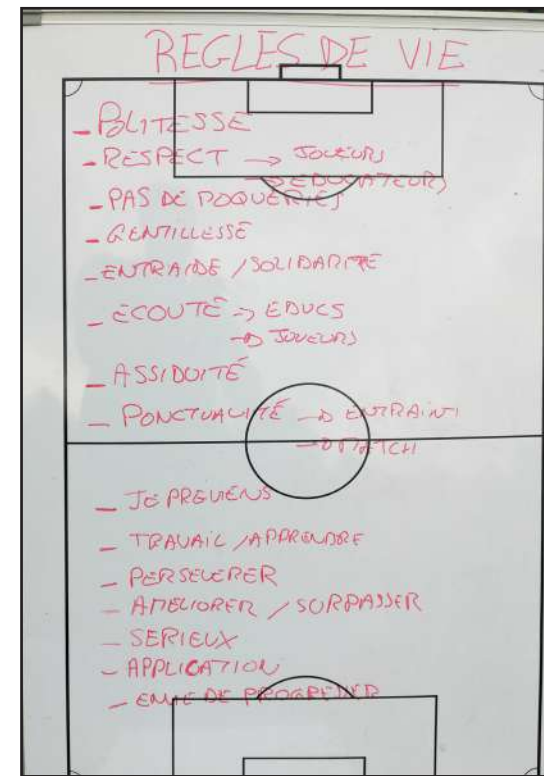 REGLES DE VIE
- POLITESSE
- RESPECT → JOUEURS
→ EDUCATEURS
- PAS DE MOQUERIES
- GENTILLESSE
- ENTRAIDE / SOLIDARITE
- ECOUTE → EDUCS
→ JOUEURS
- ASSIDUITÉ
- PONCTUALITÉ → ENTRAINT
→ MATCH
- JE PREVIENS
- TRAVAIL / APPRENDRE
- PERSEVERER
- AMELIORER / SURPASSER
- SERIEUX
- APPLICATION
- ENVIE DE PROGRESSER